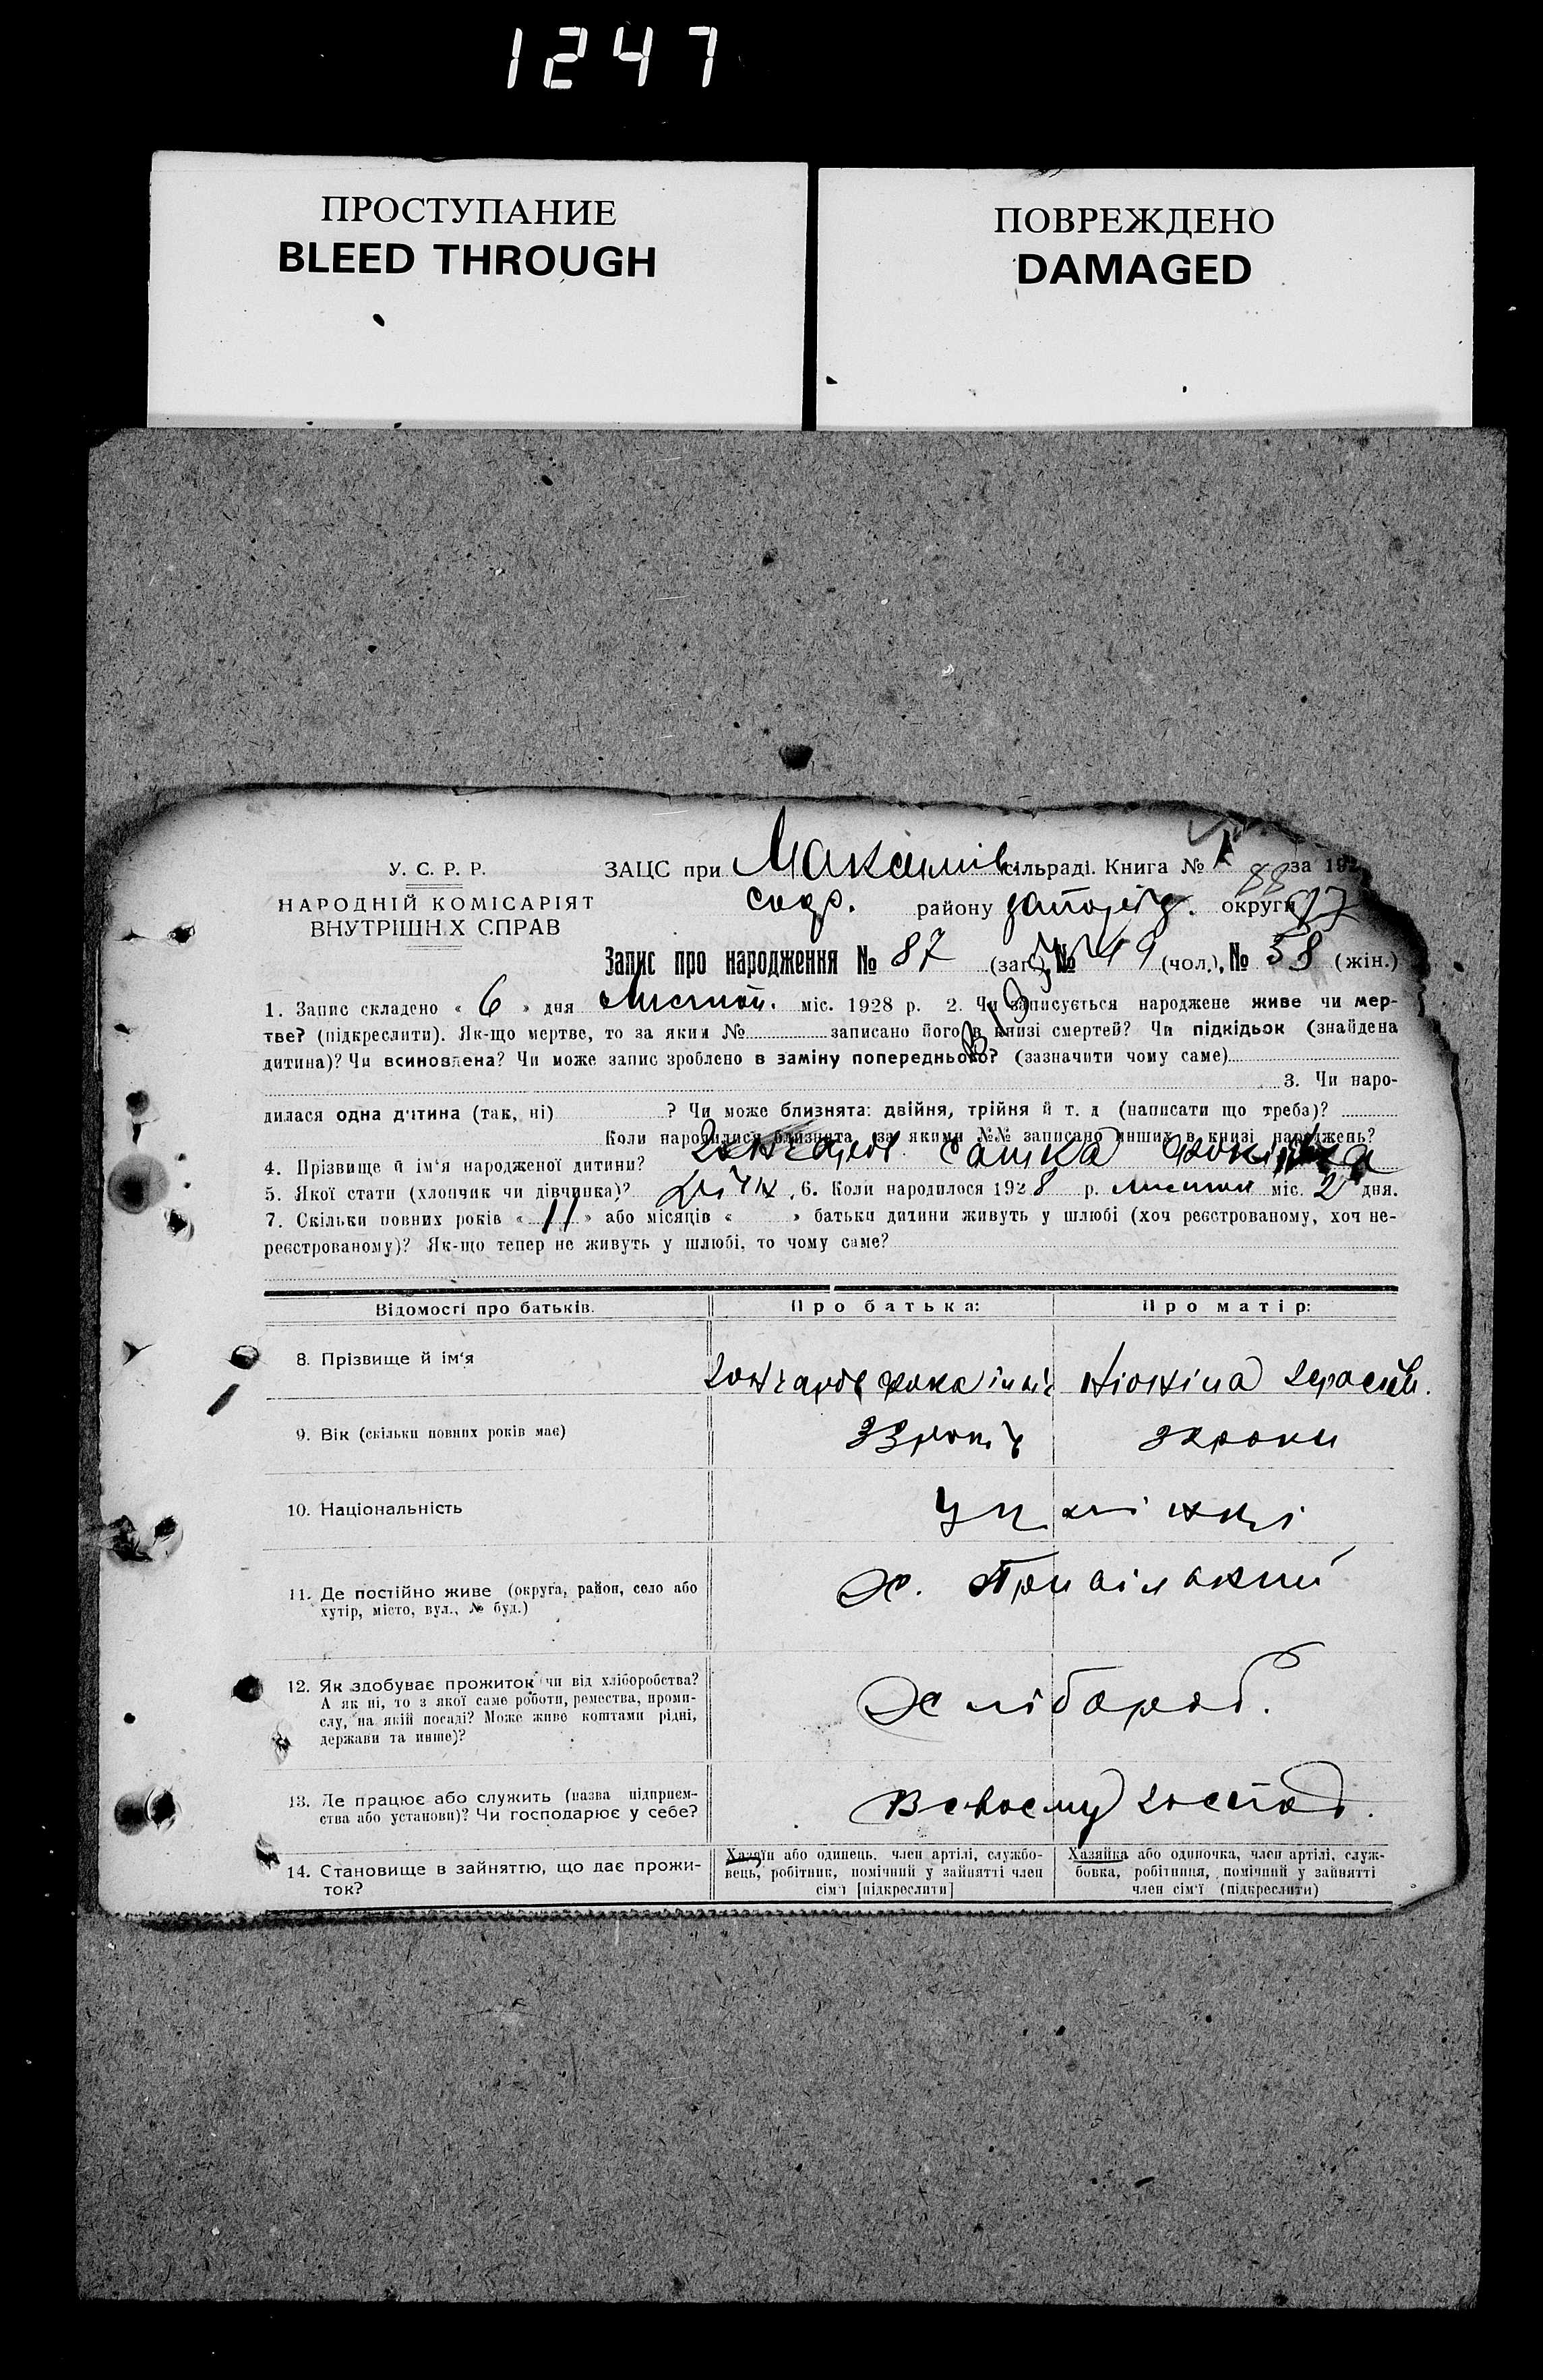 1247
ПРОСТУПАНИЕ
BLEED THROUGH
ПОВРЕЖДЕНО
DAMAGED
У. С. Р. Р.
НАРОДНІЙ КОМІСАРІЯТ
ВНУТРІШН Х СПРАВ
ЗАЦС при сільраді. Книга № за 192
району округи
Запис про народження № 87 (заг.), № 49 (чол.), № 38 (жін.)
1. Запис складено « 6 » дня міс. 1928 р. 2. Чи записується народжене живе чи мер-
тве? (підкреслити). Як-що мертве, то за яким № записано його в книзі смертей? Чи підкідьок (знайдена
дитина)? Чи всиновлена? Чи може запис зроблено в заміну попереднього? (зазначити чому саме)
3. Чи наро-
дилася одна дитина (так, ні) ? Чи може близнята: двійня, трійня й т. д (написати що треба)?
Коли народилися близнята, за якими №№ записано инших в книзі народжень?
4. Прізвище й ім'я народженої дитини? Сашка
5. Якої стати (хлопчик чи дівчинка)? 6. Коли народилося 1928 р. міс. 2 дня.
7. Скільки повних років « 11 » або місяців « » батьки дитини живуть у шлюбі (хоч реєстрованому, хоч не-
реєстрованому)? Як-що тепер не живуть у шлюбі, то чому саме?
Відомості про батьків. Про батька: Про матір:
8. Прізвище й ім'я
9. Вік (скільки повних років має) 33 32 роки
10. Національність
11. Де постійно живе (округа, район, село або
хутір, місто, вул., № буд.)
х.
12. Як здобуває прожиток чи від хліборобства?
А як ні, то з якої саме роботи, ремества, проми-
слу, на якій посаді? Може живе коштами рідні,
держави та инше)?
Хлібороб.
13. Де працює або служить (назва підприєм-
ства або установи)? Чи господарює у себе?
В своєму господ.
14. Становище в зайняттю, що дає прожи-
ток?
Хазяїн або одинець, член артілі, службо-
вець, робітник, помічний у зайнятті член
сім'ї [підкреслити]
Хазяйка або одиночка, член артілі, служ-
бовка, робітниця, помічний у зайнятті
член сім'ї (підкреслити)